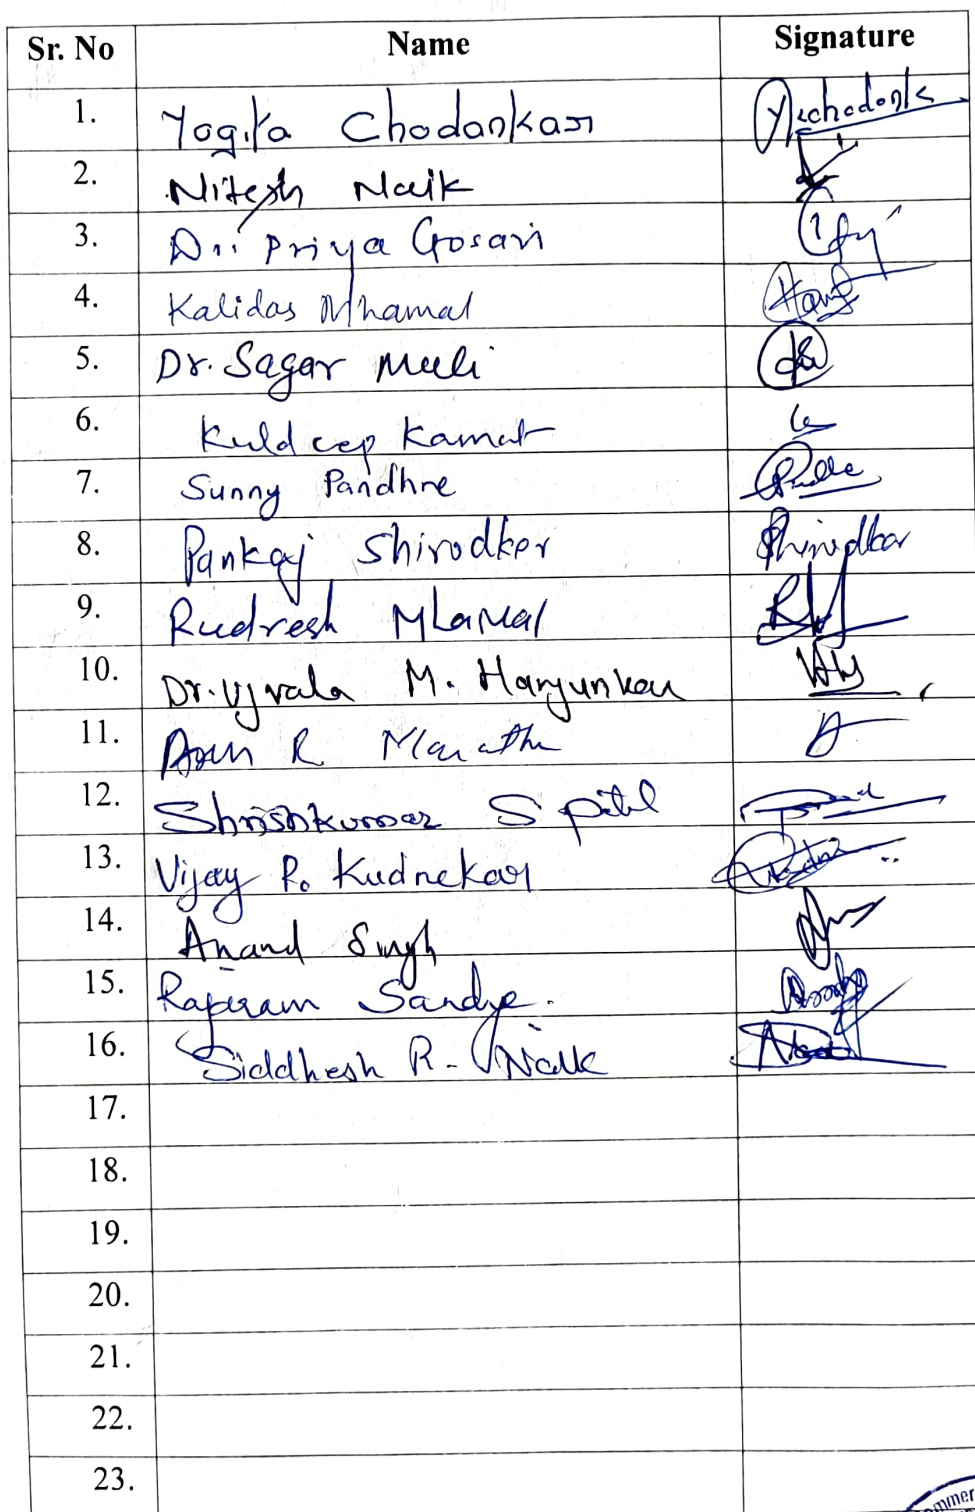 Sr. No Name Signature
1. Yogita Chodankar Ychodank
2. Nitesh Naik
3. Dr. Priya Gosavi
4. Kalidas Mhamal
5. Dr. Sagar Mali
6. Kuldeep Kamat
7. Sunny Pandhre
8. Pankaj Shirodker Shirodkar
9. Rudresh Mhamal
10. Dr. Ujvala M. Hanjunkar
11. Arun R Marathe
12. Shrishkumar S patil
13. Vijay R. Kudnekar
14. Anand Singh
15. Rajaram Sandye.
16. Siddhesh R. Naik
17.
18.
19.
20.
21.
22.
23.